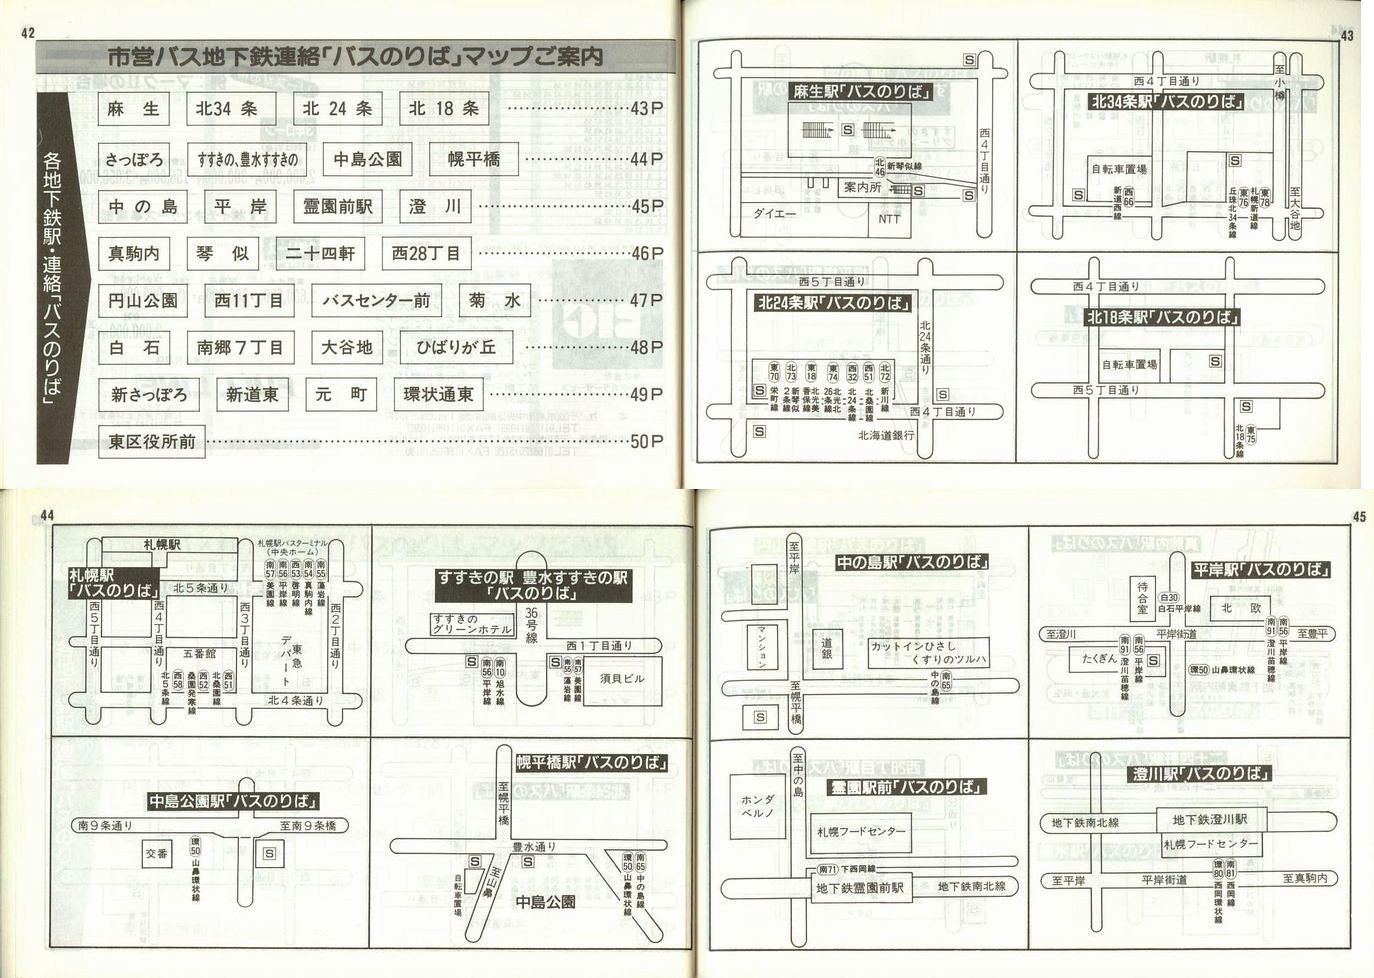 42
市営バス地下鉄連絡「バスのりば」マップご案内
各地下鉄駅・連絡「バスのりば」
麻生 北34条 北24条 北18条 43P
さっぽろ すすきの、豊水すすきの 中島公園 幌平橋 44P
中の島 平岸 霊園前駅 澄川 45P
真駒内 琴似 二十四軒 西28丁目 46P
円山公園 西11丁目 バスセンター前 菊水 47P
白石 南郷7丁目 大谷地 ひばりが丘 48P
新さっぽろ 新道東 元町 環状通東 49P
東区役所前 50P
43
麻生駅「バスのりば」
S
S
西4丁目通り
北46 新琴似線
案内所
S
S
ダイエー
NTT
北34条駅「バスのりば」
西4丁目通り
至小樽
自転車置場
S
S
西66 新道西線
東76 丘珠北34条線
東78 札幌新道線
至大谷地
北24条駅「バスのりば」
西5丁目通り
北24条通り
S
東70 栄町線
北73 新琴似2条線
東18 北光美香保線
東74 北光北26条線
西32 北24条線
西51 北桑園線
北72 新川線
S
西4丁目通り
S
北海道銀行
北18条駅「バスのりば」
西4丁目通り
自転車置場
S
西5丁目通り
S
東75 北18条線
44
札幌駅
札幌駅「バスのりば」
札幌駅バスターミナル(中央ホーム)
南57 美園線
南56 平岸線
西53 啓明線
南54 真駒内線
南55 藻岩線
北5条通り
西5丁目通り
西4丁目通り
西3丁目通り
西2丁目通り
五番館
東急デパート
北5条線
西58 桑園発寒線
西52
西51 北桑園線
北4条通り
すすきの駅 豊水すすきの駅「バスのりば」
すすきのグリーンホテル
36号線
西1丁目通り
S
南56 平岸線
南10 旭水線
S
南55 藻岩線
南57 美園線
須貝ビル
中島公園駅「バスのりば」
南9条通り
至南9条橋
交番
環50 山鼻環状線
S
幌平橋駅「バスのりば」
至幌平橋
豊水通り
S
S
自転車置場
至山鼻
中島公園
環50 山鼻環状線
南65 中の島線
45
中の島駅「バスのりば」
至平岸
マンション
道銀
カットインひさし
くすりのツルハ
南65 中の島線
至幌平橋
S
平岸駅「バスのりば」
待合室
白30 白石平岸線
北欧
至澄川
平岸街道
至豊平
たくぎん
南91 澄川苗穂線
南56 平岸線
S
環50 山鼻環状線
南91 澄川苗穂線
南56 平岸線
霊園駅前「バスのりば」
至中の島
ホンダベルノ
札幌フードセンター
南71 下西岡線
地下鉄霊園前駅
地下鉄南北線
澄川駅「バスのりば」
地下鉄南北線
地下鉄澄川駅
札幌フードセンター
至平岸
平岸街道
至真駒内
環80 西岡環状線
南81 西岡線